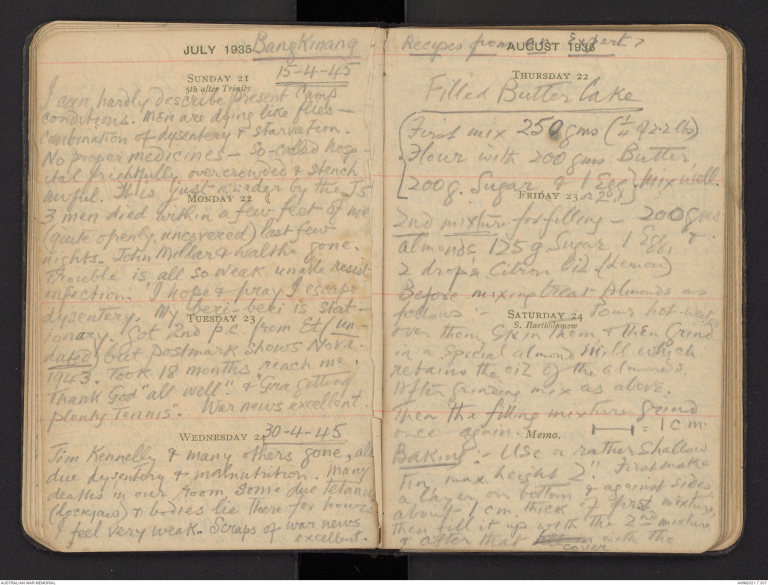 JULY 1935 Bangkinang
15-4-45
SUNDAY 21
5th after Trinity
I can hardly describe present camp
conditions. Men are dying like flies —
combination of dysentery & starvation.
No proper medicines — so-called hosp-
ital frightfully overcrowded & stench
awful. It is just murder by the Js
MONDAY 22
3 men died within a few feet of me
(quite openly, uncovered) last few
nights. John Millar & gone.
Trouble is all so weak unable resist
infection. I hope & pray I escape
dysentery. My beri-beri is stat-
TUESDAY 23
ionary. Got 2nd p.c. from Et (un-
dated) but postmark shows Nov.
1943. Took 18 months reach me.
Thank God "all well" & Gra getting
plenty Tennis". War news excellent.
WEDNESDAY 24
30-4-45
Jim Kennelly & many others gone, all
due dysentery & malnutrition. Many
deaths in our room some due tetanus
(lockjaw) & bodies lie there for hours
I feel very weak. Scraps of war news
excellent.
Recipes from an Expert
AUGUST 1935
THURSDAY 22
Filled Butter Cake
First mix 250 gms (¼ 2.2 lbs)
Flour with 200 gms Butter,
200 g. Sugar & 1 Egg Mix well.
FRIDAY 23
2nd mixture for filling — 200 gms
almonds 125 g Sugar 1 Egg, &
2 drops Citron Oil (Lemon)
Before mixing treat Almonds as
SATURDAY 24
S. Bartholomew
follows :- Pour hot water
over them them & then Grind
in a special almond Mill which
retains the oil of the almonds.
After grinding mix as above.
Then the filling mixture grind
once again. = 1 cm.
MEMO.
Baking :- Use a rather shallow
Tin, max. height 2". First make
a layer on bottom & against sides
about 1 cm. thick of first mixture,
then fill it up with the 2nd mixture
& after that with the
cover.
AUSTRALIAN WAR MEMORIAL
AWM2021.7.107